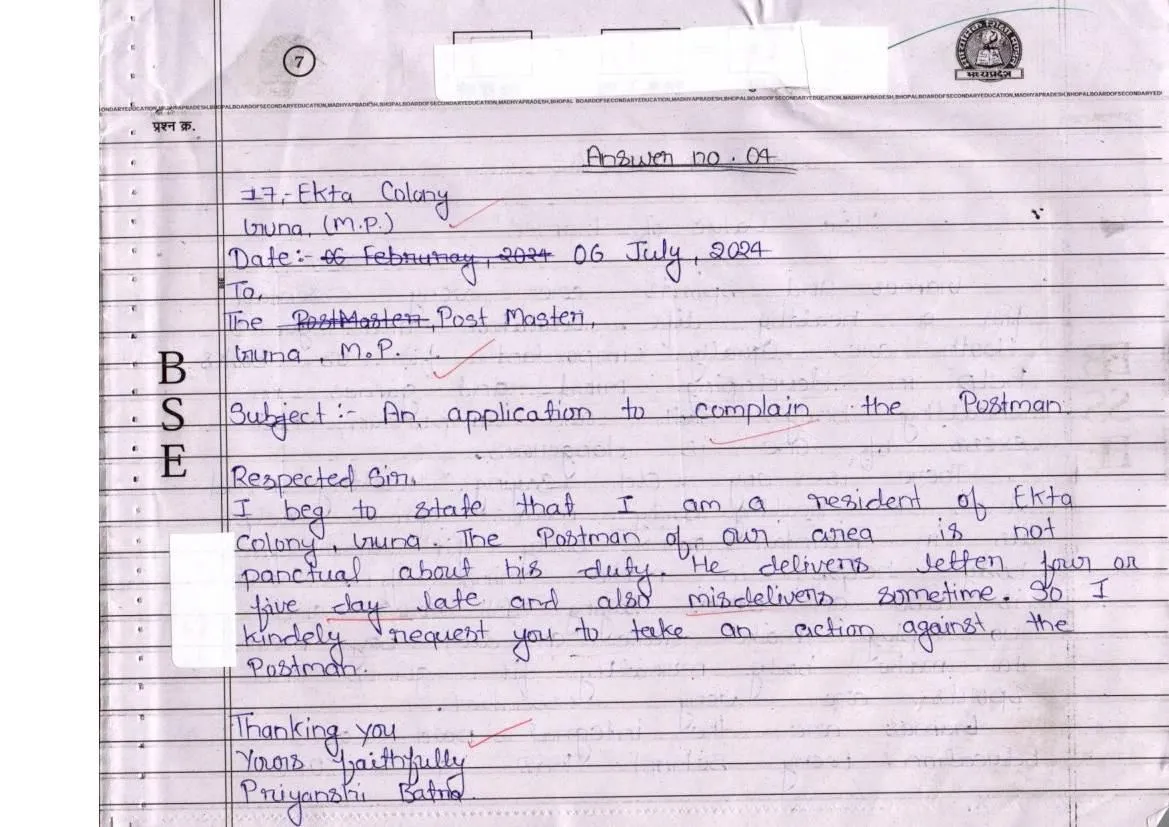 7
मध्यप्रदेश
BOARD OF SECONDARY EDUCATION, MADHYA PRADESH, BHOPAL
प्रश्न क्र.
Answer no. 04
17,- Ekta Colony
Guna, (M.P.)
Date:- 06 Februray, 2024 06 July, 2024
To,
The PostMaster, Post Master,
Guna, M.P.
B
S
E
Subject :- An application to complain the Postman
Respected Sir,
I beg to state that I am a resident of Ekta
Colony, Guna. The Postman of our area is not
panctual about his duty. He delivers letter four or
five day late and also misdelivers sometime. So I
kindely request you to take an action against the
Postman.
Thanking you
Yours faithfully
Priyanshi Batra